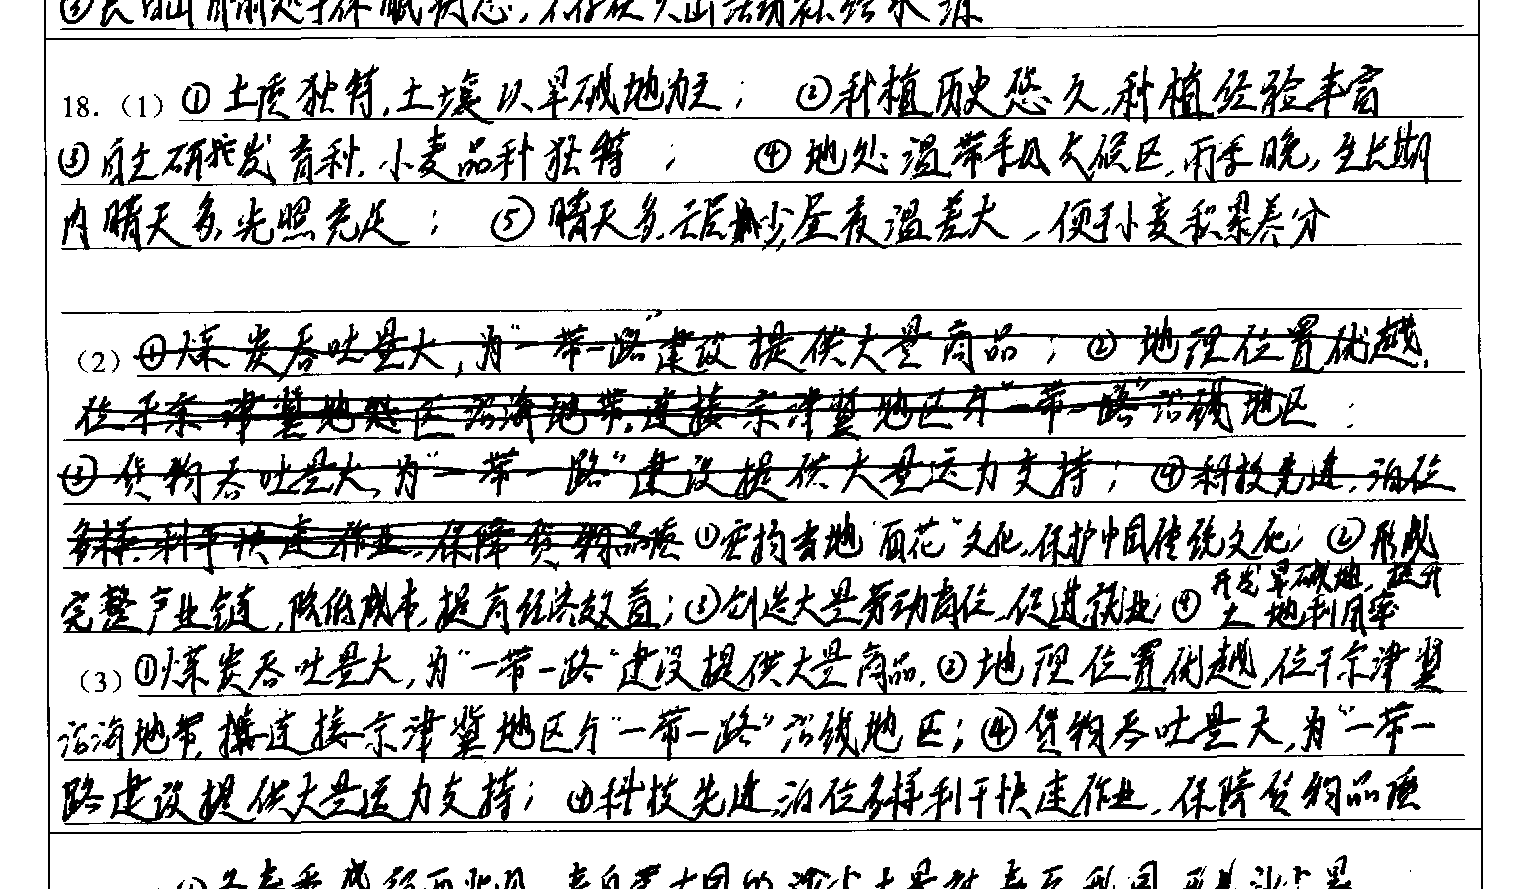 18.（1）①土质独特,土壤以旱碱地为主；②种植历史悠久,种植经验丰富
③自主研究发育种,小麦品种独特；④地处温带季风气候区,雨季晚,生长期
内晴天多,光照充足；⑤晴天多,云层少,昼夜温差大,便于小麦积累养分
（2）①煤炭吞吐量大,为“一带一路”建设提供大量商品；②地理位置优越,
位于京津冀地区沿海地带,连接京津冀地区与“一带一路”沿线地区；
③货物吞吐量大,为“一带一路”建设提供大量运力支持；④科技先进,泊位
多样,利于快速作业,保障货物品质 ①契构当地“面花”文化,保护中国传统文化；②形成
开发旱碱地,提升
完整产业链,降低成本,提高经济效益；③创造大量劳动岗位,促进就业；④土地利用率
（3）①煤炭吞吐量大,为“一带一路”建设提供大量商品,②地理位置优越,位于京津冀
沿海地带,连接京津冀地区与“一带一路”沿线地区；④货物吞吐量大,为“一带一
路建设提供大量运力支持；④科技先进,泊位多样利于快速作业,保障货物品质